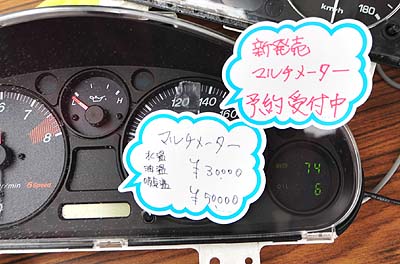 km/h
180
新発売
マルチメーター
予約受付中
L
H
120
140
160
8
r/min
6 Speed
マルチメーター
水温
油温
¥30,000
¥50,000
OIL
74
6